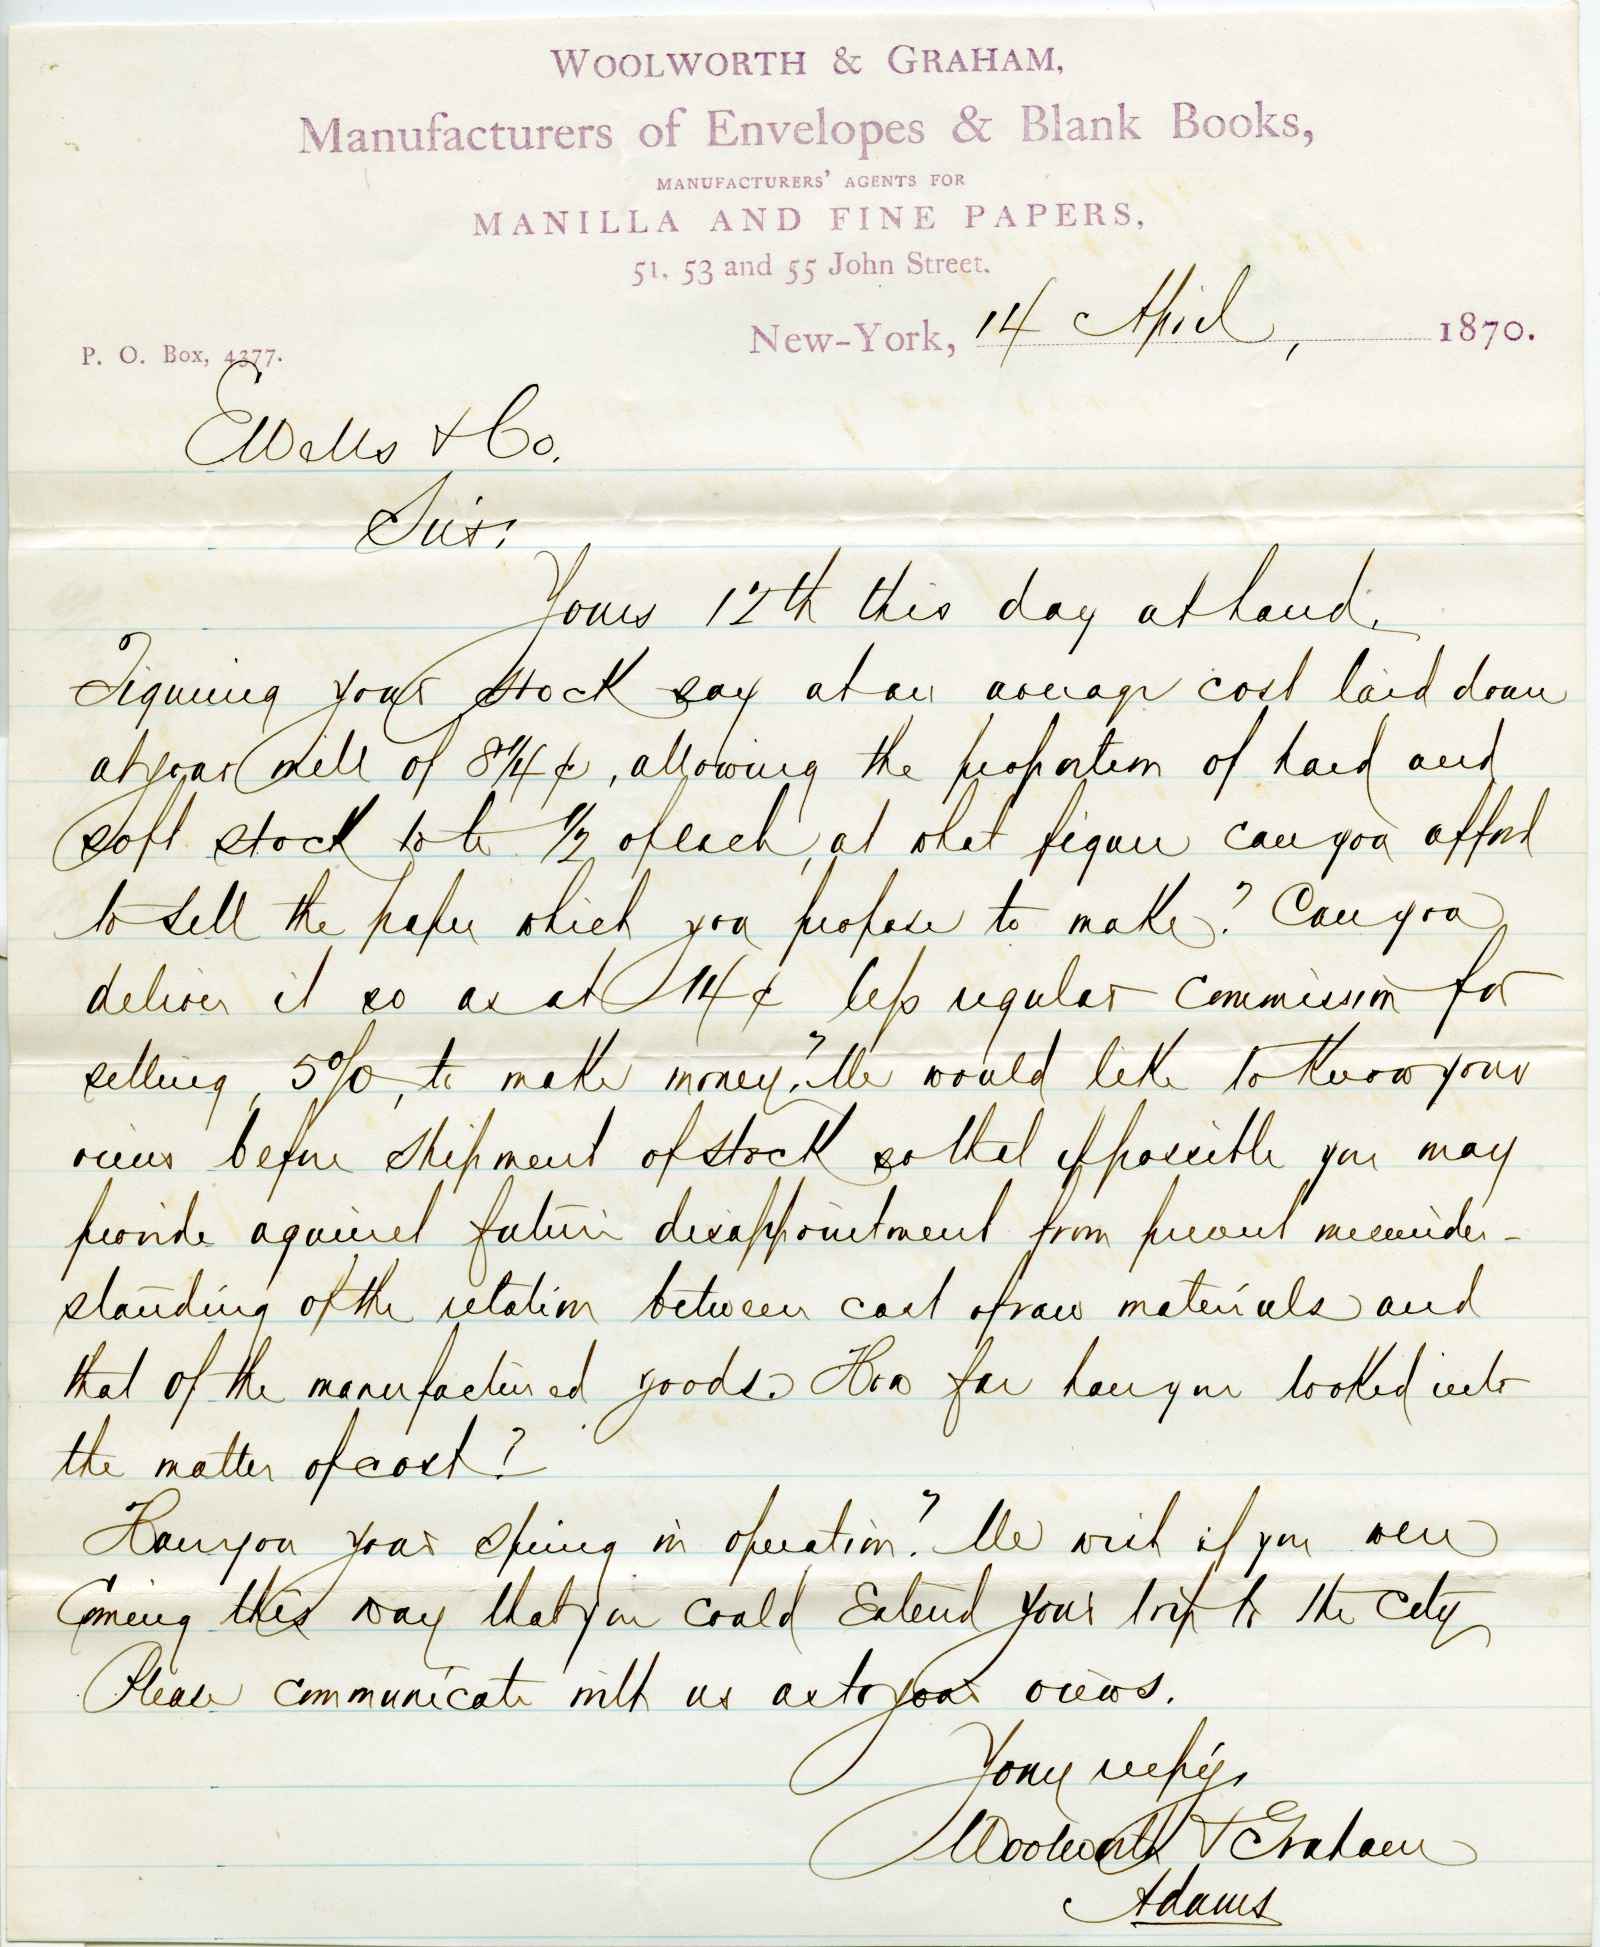 WOOLWORTH & GRAHAM,
Manufacturers of Envelopes & Blank Books,
MANUFACTURERS' AGENTS FOR
MANILLA AND FINE PAPERS,
51, 53 and 55 John Street.
New-York, 14 April, 1870.
P. O. Box, 4377.
EWells & Co.
Sirs:
Yours 12th this day at hand.
Figuring your stock say at an average cost laid down
at your mill of 8¼ ¢, allowing the proportion of hard and
soft stock to be ½ of each, at what figure can you afford
to sell the paper which you propose to make? Can you
deliver it so as at 14 ¢ less regular commission for
selling, 5%, to make money? We would like to know your
views before shipment of stock so that if possible you may
provide against future disappointment from present misunder-
standing of the relation between cost of raw materials and
that of the manufactured goods. How far have you looked into
the matter of cost?
Have you your spring in operation? We wish if you were
Coming this way that you could Extend your trip to the City
Please communicate with us as to your views.
Yours respy.
Woolworth & Graham
Adams